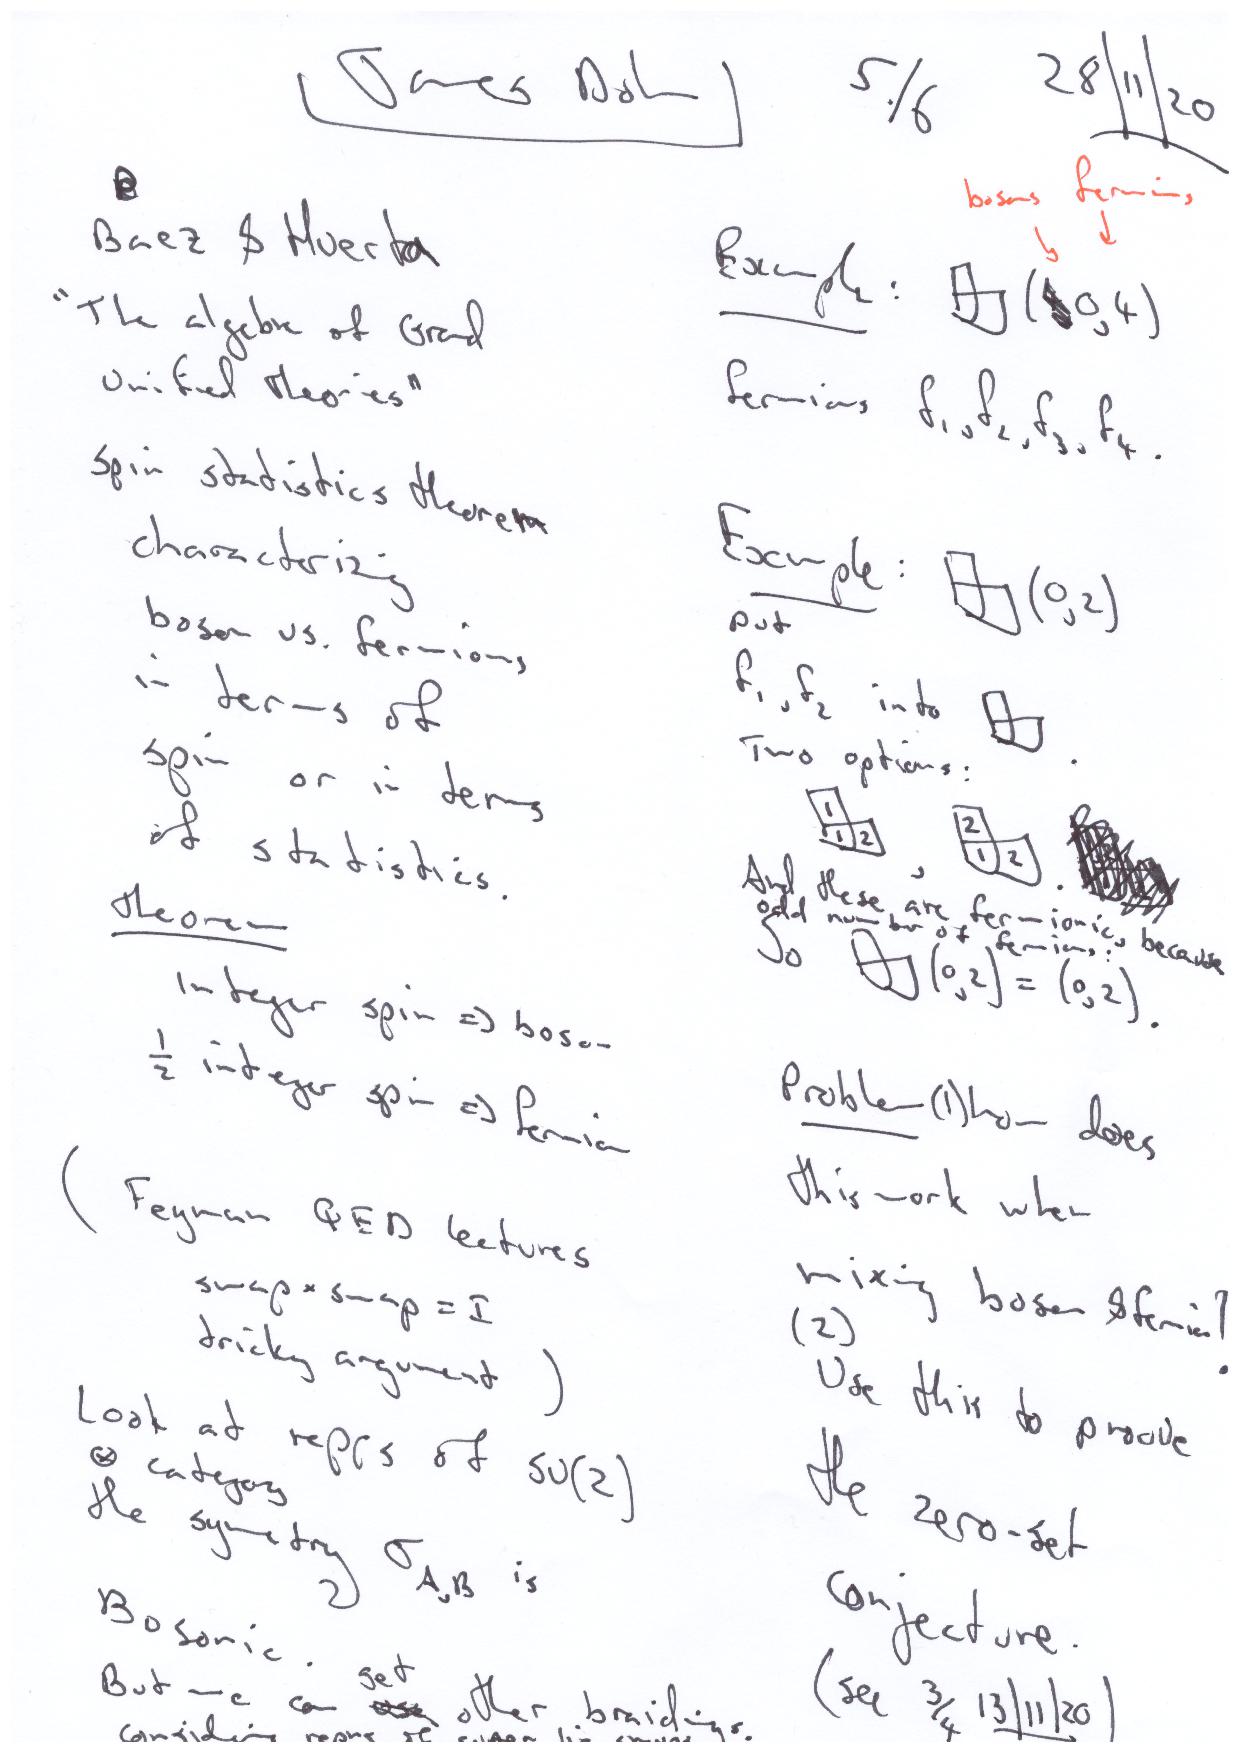 James Dol
5/6
28/11/20
Baez & Huerta
"The algebra of Grand
Unified theories"
spin statistics theorem
characterizing
boson vs. fermions
in terms of
spin or in terms
of statistics.
theorem
Integer spin => boson
1/2 integer spin => fermion
( Feynman QED lectures
swap * swap = I
tricky argument )
Look at reprs of SU(2)
⊗ category
the symmetry σ_A,B is
Bosonic.
But we can get other braidings.
considering reprs of super lie groups
bosons fermions
Example: (0,4)
fermions f1, f2, f3, f4.
Example: (0,2)
put
f1, f2 into .
Two options:
1 1 2 , 2 1 2 .
And these are fermionic, because
odd number of fermions.
So (0,2) = (0,2).
Problem (1) how does
this work when
mixing boson & fermion?
(2)
Use this to proove
the zero-set
conjecture.
(see 3/4 13/11/20)